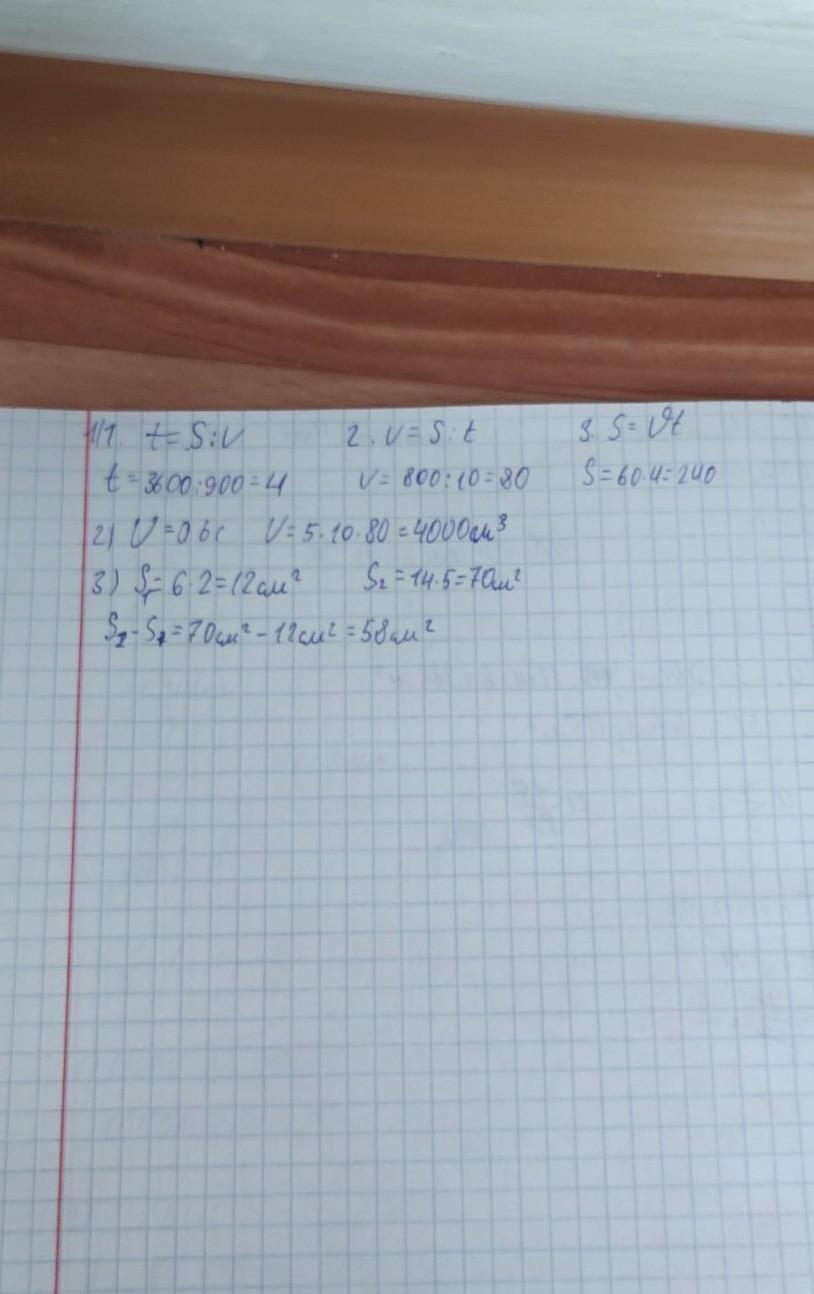 №1 t=S:V 2. V=S:t 3. S=Vt
t=3600:900=4 V=800:10=80 S=60·4=240
2) V=abc V=5·10·80=4000см³
3) S₁=6·2=12см² S₂=14·5=70см²
S₂-S₁=70см²-12см²=58см²